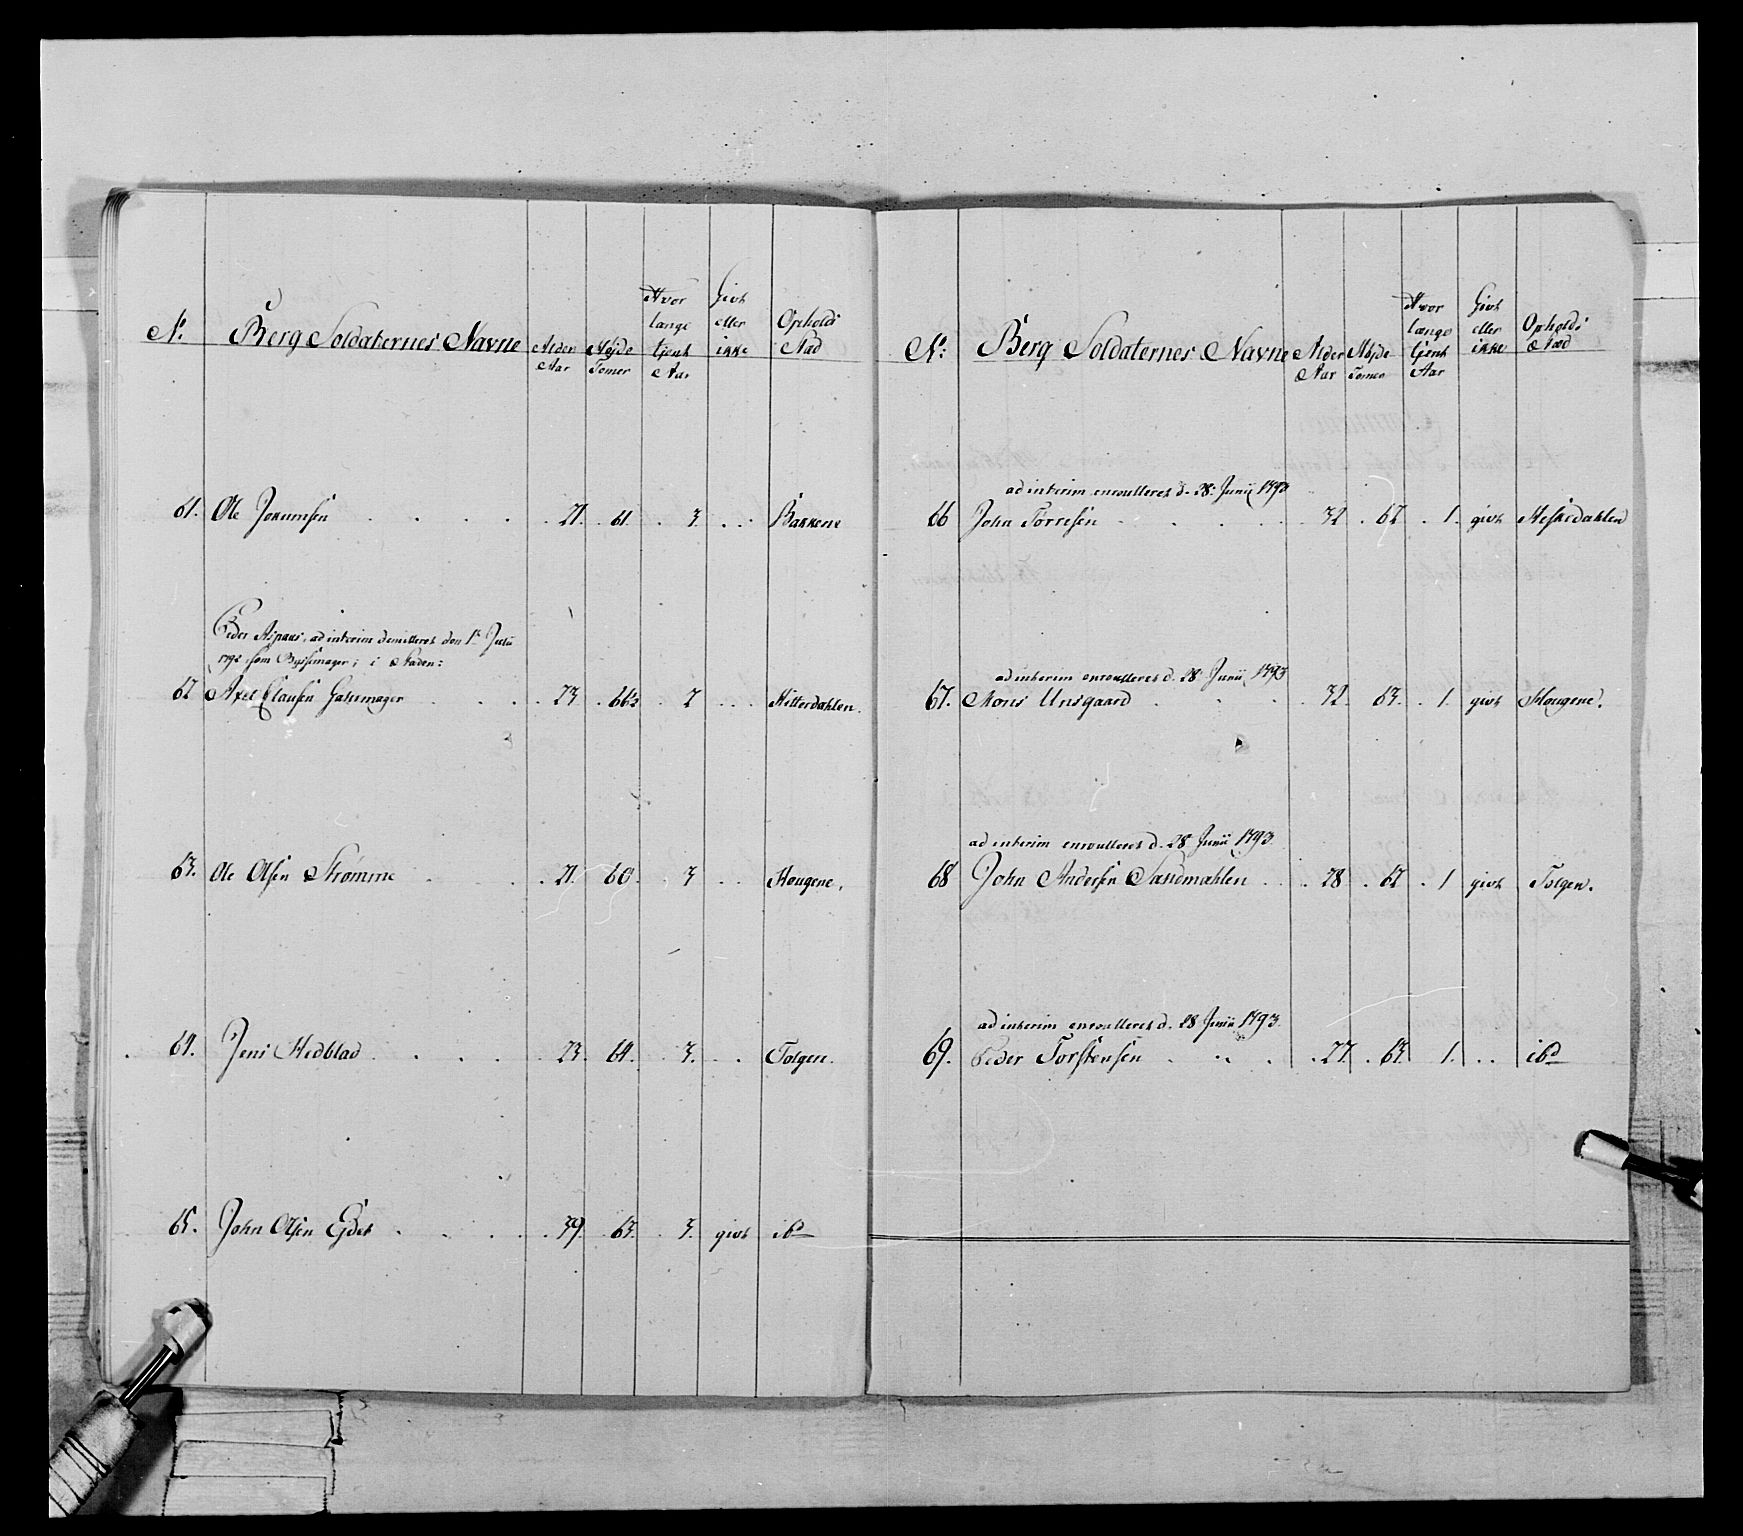 No. Berg Soldaternes Navne Alder Aar Højde Tomer Hvor længe tjent Aar Givt eller ikke Opholds Stad
61. Ole Jokumsen 21. 61. 3. Bakkene
Peder Aspaas, ad interim demitteret den 1te Julii
1792 som Bøssemager i Staden:
62 Axel Clausen 23. 66½ 2 Hitterdahlen.
63. Ole Olsen Strømme 21. 60. 3 Hougene.
64. Jens Hedblad 23. 64. 3. Tolgen.
65. John Olsen Eidet 39. 63. 3. givt ibd
No: Berg Soldaternes Navne Alder Aar Højde Tomer Hvor længe tjent Aar Givt eller ikke Opholds Stæd
ad interim enroulleret d. 28. Junii 1793
66 John Torresen 32. 62 1. givt Heskedahlen
ad interim enroulleret d. 28 Junii 1793
67. Mons Unsgaard 32. 63. 1. givt Hougene.
ad interim enroulleret d. 28 Junii 1793.
68 John Andersen Sandmahlen 28 62 1 givt Tolgen.
ad interim enroulleret d. 28 Junii 1793.
69. Peder Torstensen 27. 63. 1. ibd